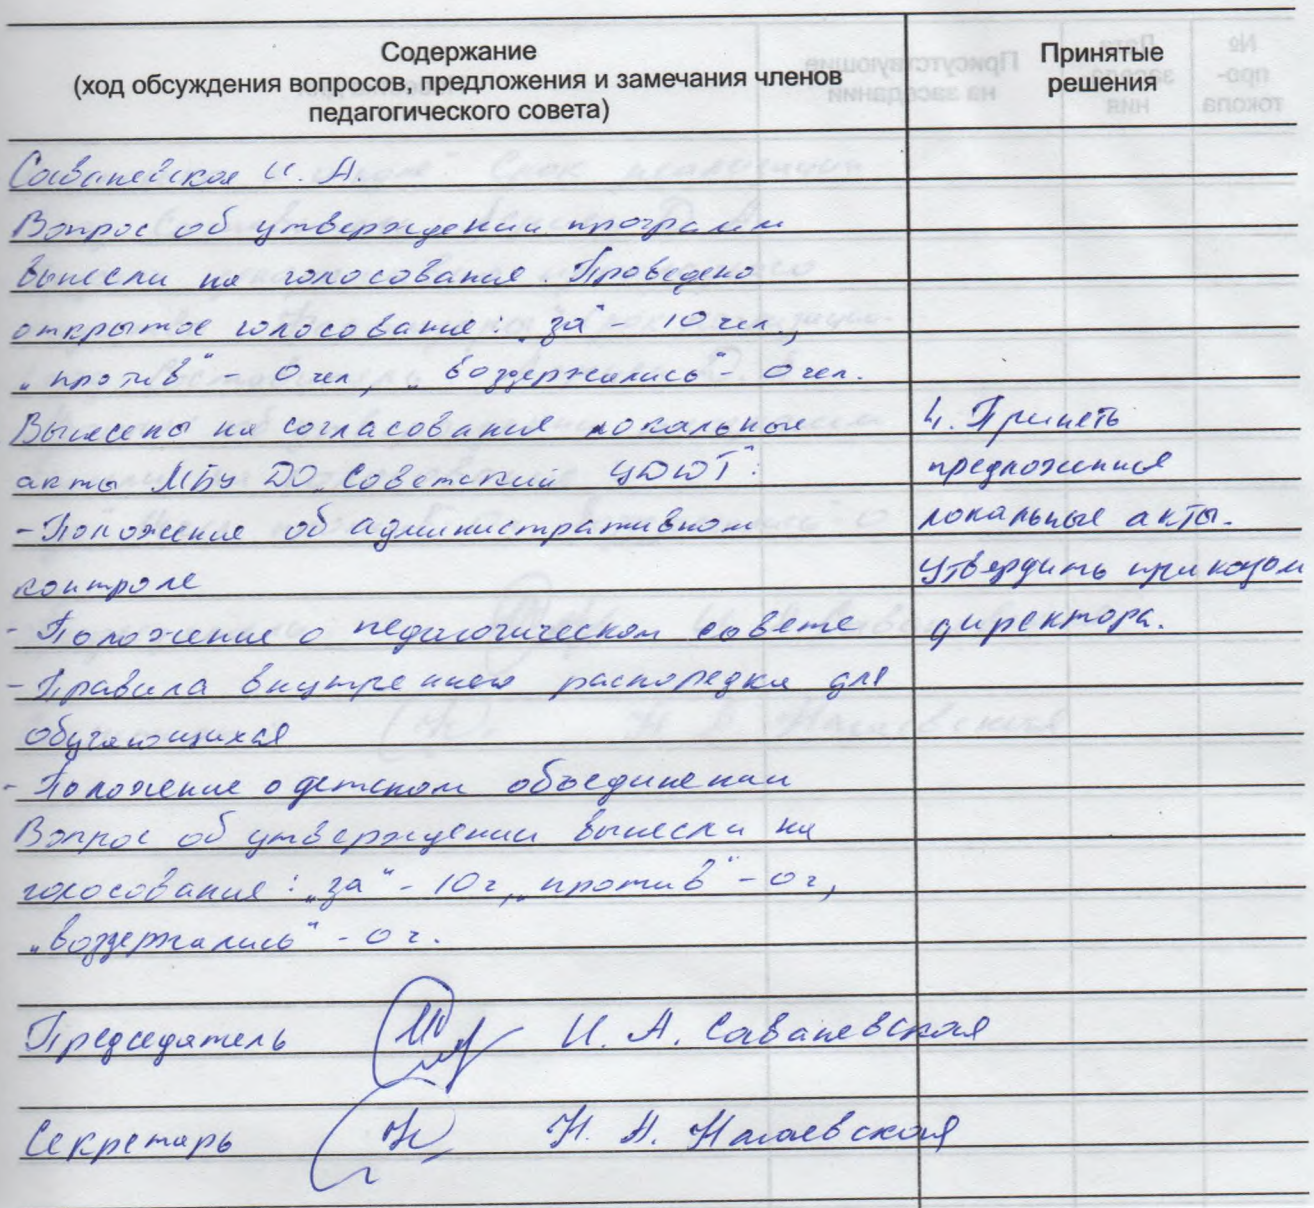 Содержание
(ход обсуждения вопросов, предложения и замечания членов
педагогического совета)
Принятые
решения
Саваневская И. А.
Вопрос об утверждении программ
вынесли на голосование. Проведено
открытое голосование: „за" - 10 чел,
„против" - 0 чел, „воздержались" - 0 чел.
Вынесены на согласование локальные
акты МБУ ДО „Советский ЦДЮТ":
- Положение об административном
контроле
- Положение о педагогическом совете
- Правила внутреннего распорядка для
обучающихся
- Положение о детском объединении
Вопрос об утверждении вынесли на
голосование: „за" - 10 ч, „против" - 0 ч,
„воздержались" - 0 ч.
4. Принять
предложенные
локальные акты.
Утвердить приказом
директора.
Председатель И. А. Саваневская
Секретарь Н. А.